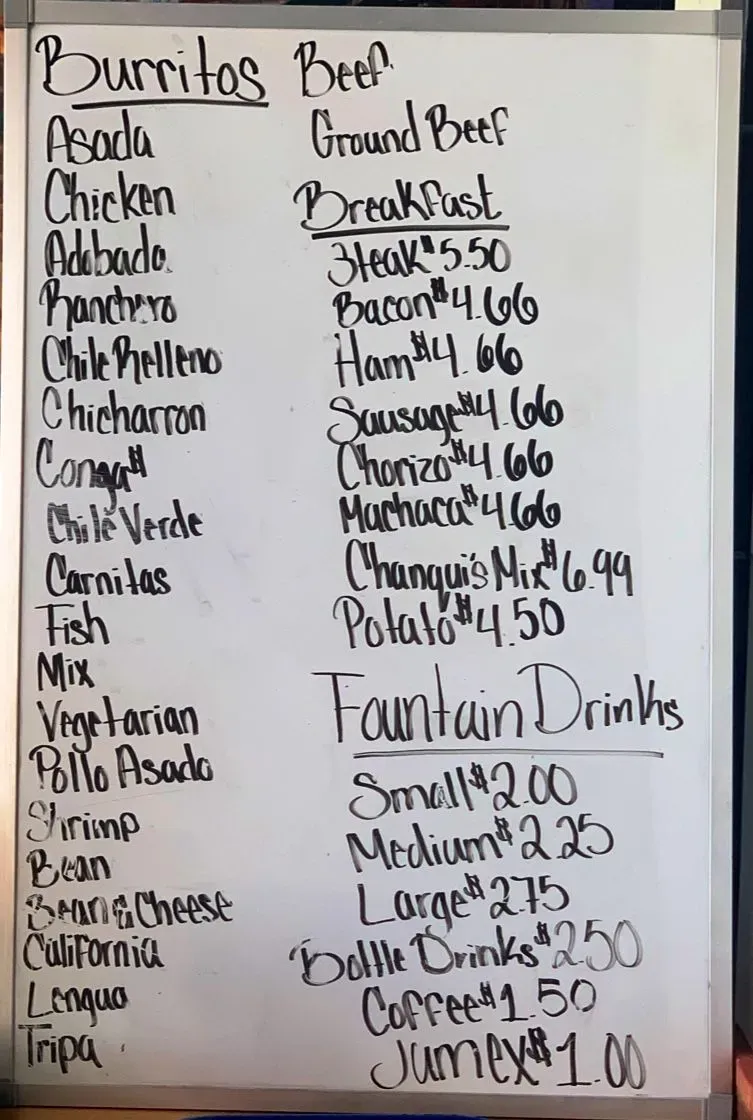 Burritos
Asada
Chicken
Adobado
Ranchero
Chile Relleno
Chicharron
Conga$
Chile Verde
Carnitas
Fish
Mix
Vegetarian
Pollo Asado
Shrimp
Bean
Bean & Cheese
California
Lengua
Tripa
Beef
Ground Beef
Breakfast
Steak $5.50
Bacon $4.66
Ham $4.66
Sausage $4.66
Chorizo $4.66
Machaca $4.66
Chanqui's Mix $6.99
Potato $4.50
Fountain Drinks
Small $2.00
Medium $2.25
Large $2.75
Bottle Drinks $2.50
Coffee $1.50
Jumex $1.00